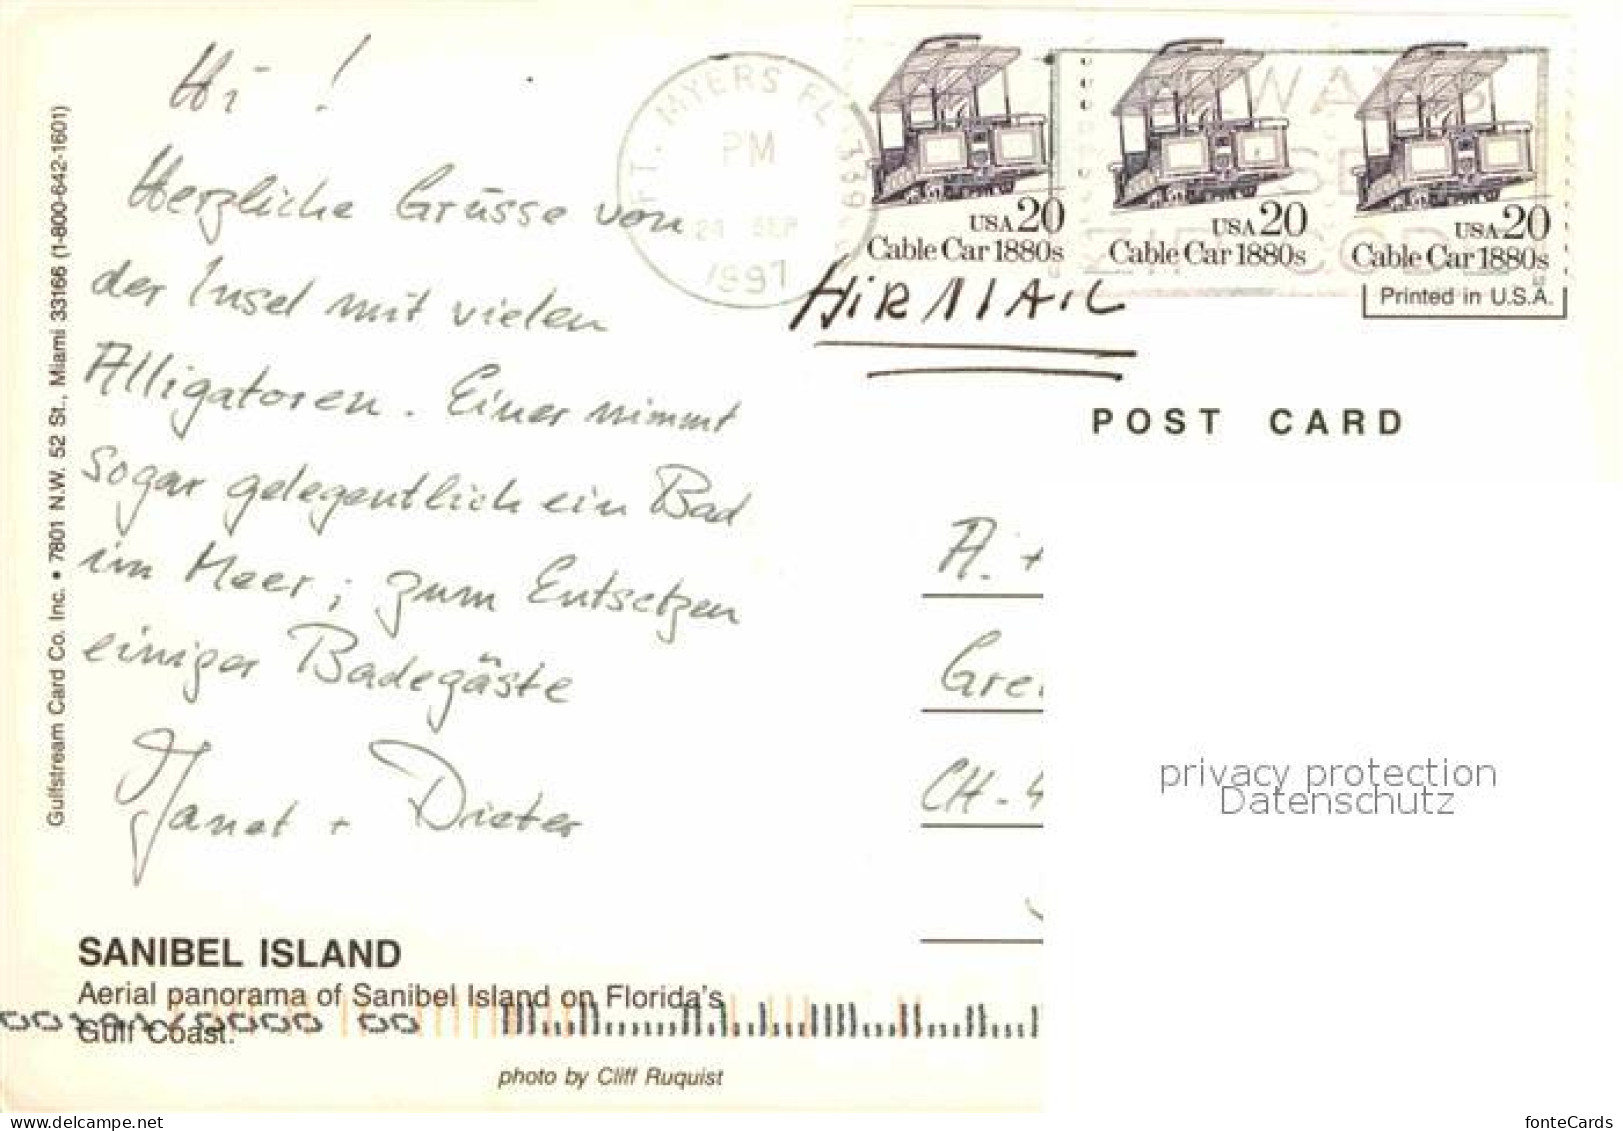 Hi !
Herzliche Grüsse von
der Insel mit vielen
Alligatoren. Einer nimmt
sogar gelegentlich ein Bad
im Meer; zum Entsetzen
einiger Badegäste
Janet + Dieter
SANIBEL ISLAND
Aerial panorama of Sanibel Island on Florida's
Gulf Coast.
photo by Cliff Ruquist
Gulfstream Card Co. Inc. • 7801 N.W. 52 St., Miami 33166 (1-800-642-1601)
FT. MYERS FL 339
PM
24 SEP
1997
USA 20
Cable Car 1880s
USA 20
Cable Car 1880s
USA 20
Cable Car 1880s
ZIP COD
Printed in U.S.A.
AIRMAIL
POST CARD
A. +
Gre
CH-4
privacy protection
Datenschutz
www.delcampe.net
fonteCards